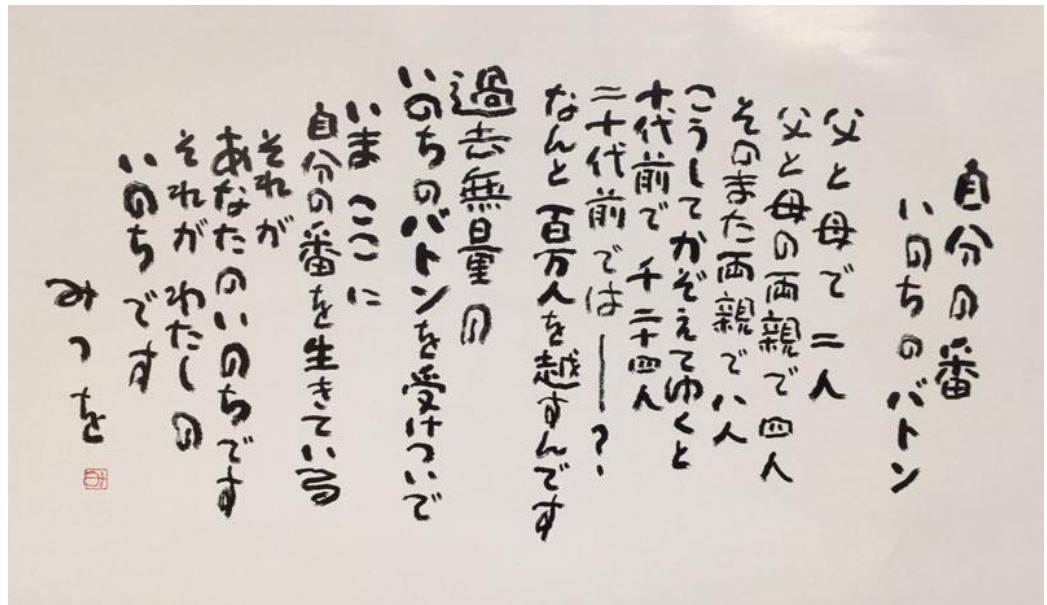 自分の番
いのちのバトン
父と母で二人
父と母の両親で四人
そのまた両親で八人
こうしてかぞえてゆくと
十代前で 千二十四人
二十代前では―？
なんと百万人を越すんです
過去無量の
いのちのバトンを受けついで
いま ここに
自分の番を生きている
それが
あなたのいのちです
それが わたしの
いのちです
みつを